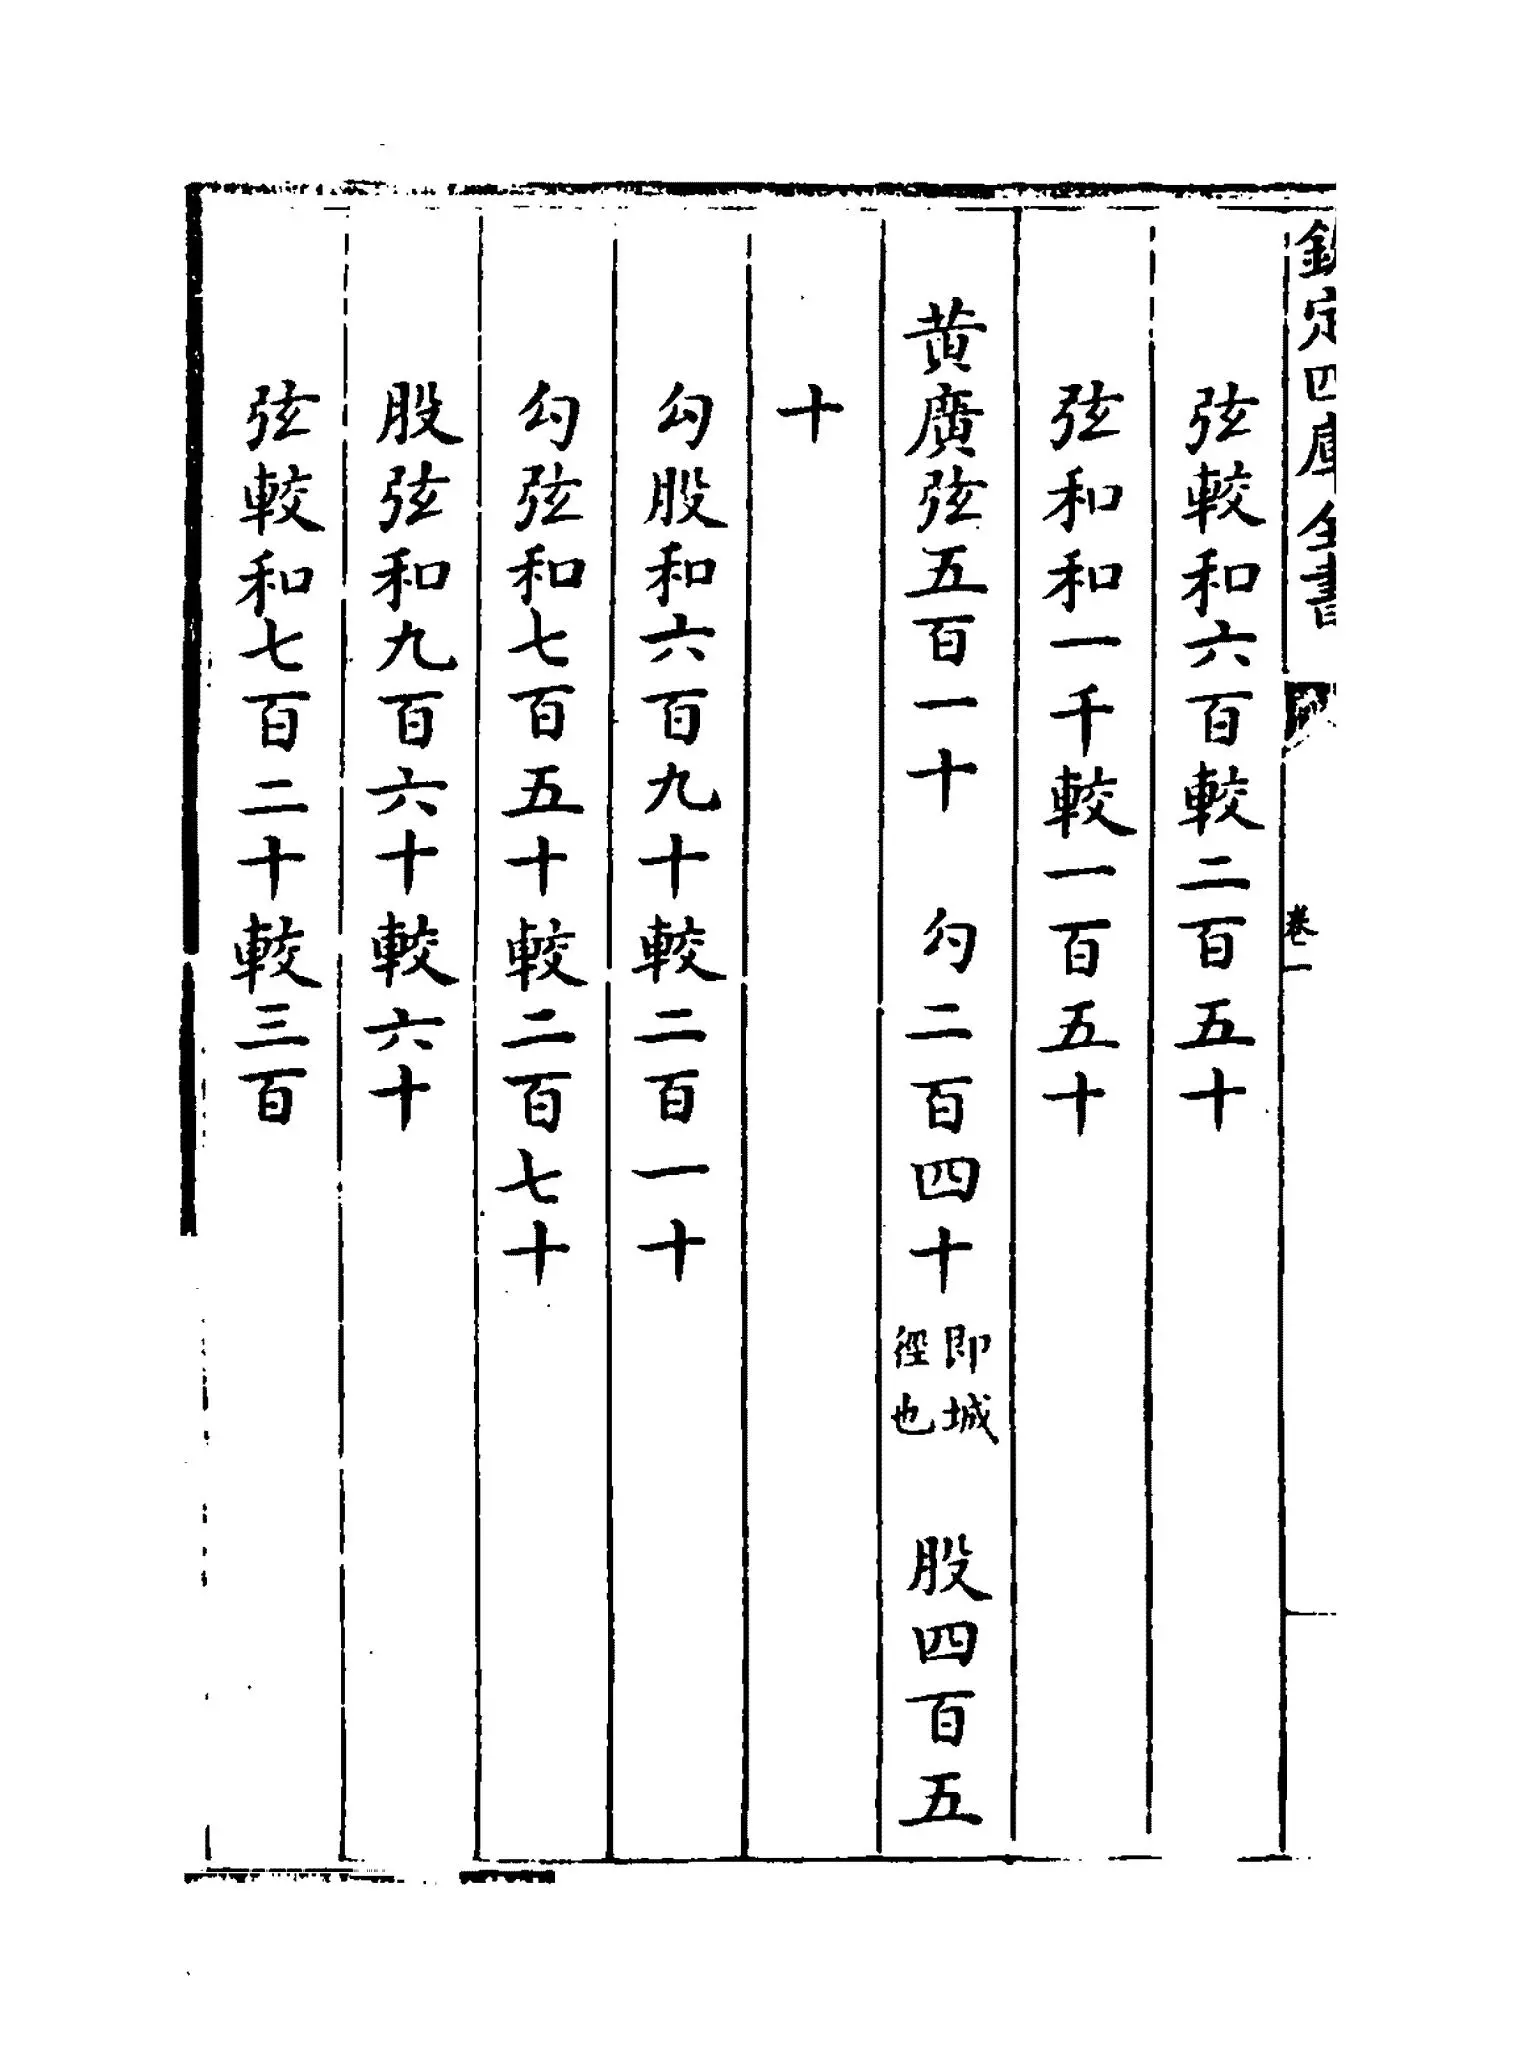 欽定四庫全書
卷一
弦較和六百較二百五十
弦和和一千較一百五十
黄廣弦五百一十　勾二百四十即城徑也　股四百五
十
勾股和六百九十較二百一十
勾弦和七百五十較二百七十
股弦和九百六十較六十
弦較和七百二十較三百